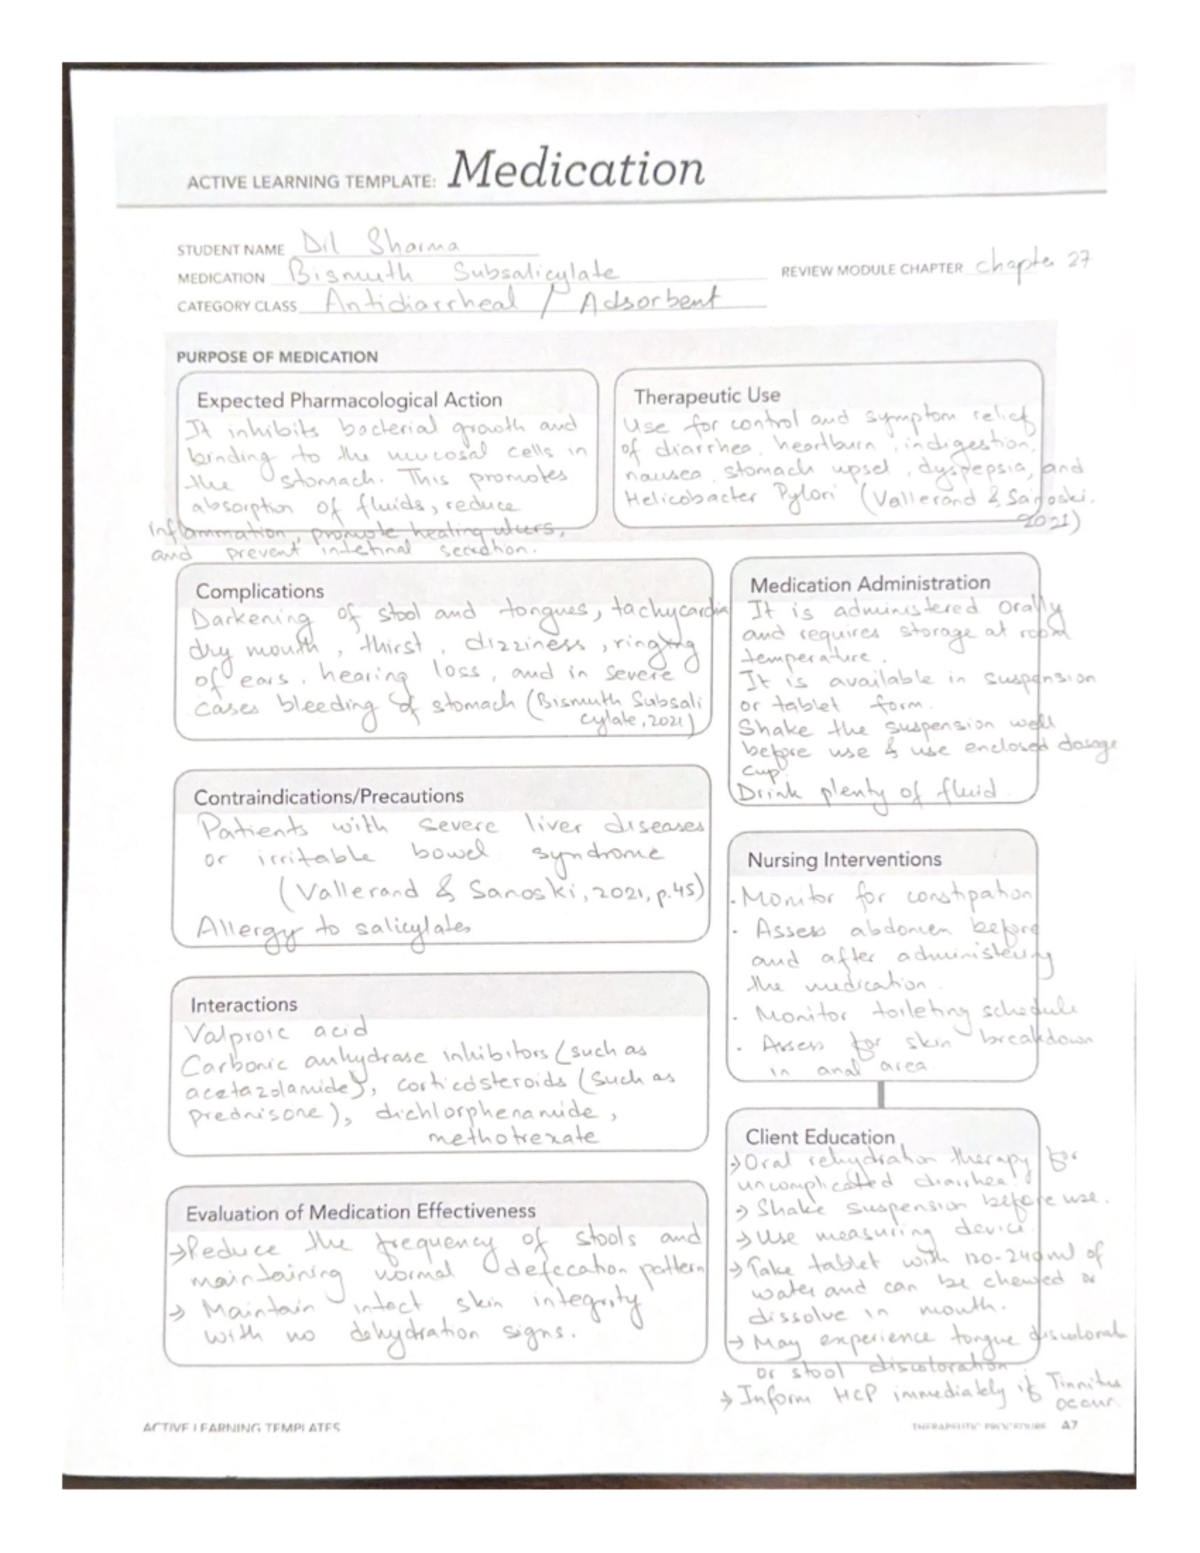 ACTIVE LEARNING TEMPLATE: Medication
STUDENT NAME Dil Sharma
MEDICATION Bismuth Subsalicylate
REVIEW MODULE CHAPTER chapter 27
CATEGORY CLASS Antidiarrheal / Adsorbent
PURPOSE OF MEDICATION
Expected Pharmacological Action
It inhibits bacterial growth and
binding to the mucosal cells in
the stomach. This promotes
absorption of fluids, reduce
inflammation, promote healing ulcers,
and prevent intestinal secretion.
Therapeutic Use
Use for control and symptom relief
of diarrhea, heartburn, indigestion,
nausea, stomach upset, dyspepsia, and
Helicobacter Pylori (Vallerand & Sanoski,
2021)
Complications
Darkening of stool and tongues, tachycardia
dry mouth, thirst, dizziness, ringing
of ears, hearing loss, and in severe
cases bleeding of stomach (Bismuth Subsali
cylate, 2021)
Medication Administration
It is administered orally
and requires storage at room
temperature.
It is available in suspension
or tablet form.
Shake the suspension well
before use & use enclosed dosage
cup.
Drink plenty of fluid.
Contraindications/Precautions
Patients with severe liver diseases
or irritable bowel syndrome
(Vallerand & Sanoski, 2021, p.45)
Allergy to salicylates
Nursing Interventions
· Monitor for constipation
· Assess abdomen before
and after administering
the medication.
· Monitor toileting schedule
· Assess for skin breakdown
in anal area.
Interactions
Valproic acid
Carbonic anhydrase inhibitors (such as
acetazolamide), corticosteroids (such as
prednisone), dichlorphenamide,
methotrexate
Client Education
→ Oral rehydration therapy for
uncomplicated diarrhea.
→ Shake suspension before use.
→ Use measuring device.
→ Take tablet with 120-240ml of
water and can be chewed or
dissolve in mouth.
→ May experience tongue discolorat
or stool discoloration
→ Inform HCP immediately if Tinnitus
occur.
Evaluation of Medication Effectiveness
→ Reduce the frequency of stools and
maintaining normal defecation pattern
→ Maintain intact skin integrity
with no dehydration signs.
ACTIVE LEARNING TEMPLATES
THERAPEUTIC PROCEDURE A7